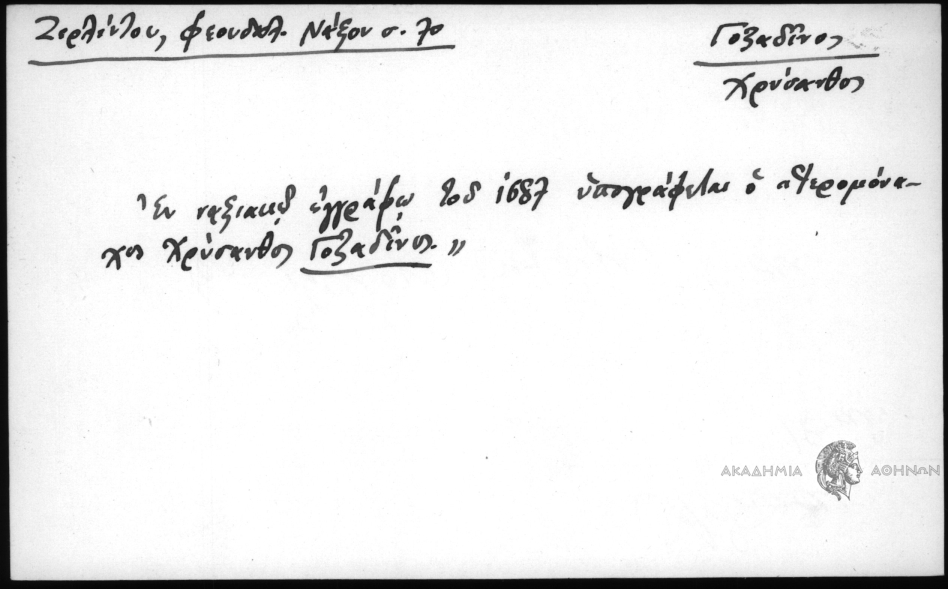 Ζερλέντου, φεουδαλ. Νάξου σ. 70
Γοζαδῖνος
Χρύσανθος
Ἐν ναξιακῷ ἐγγράφῳ τοῦ 1687 ὑπογράφεται ὁ "Ἱερομόνα-
χος Χρύσανθος Γοζαδῖνος."
ΑΚΑΔΗΜΙΑ ΑΘΗΝΩΝ